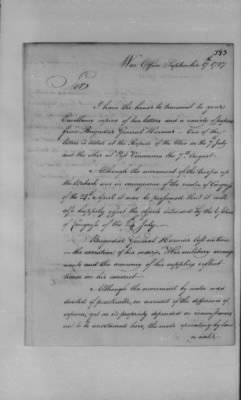 War Office September 17th 1787
Sir
I have the honor to transmit to your
Excellency copies of two letters and a variety of papers
from Brigadier General Harmar — One of the
letters is dated at the Rapids of the Ohio on the 7th July
and the other at Post Vincennes the 7th August.
Although the movement of the troops up
the Wabash was in consequence of the resolve of Congress
of the 24th April it may be presumed that it will
also happily effect the objects intended by the
of Congress of the July.
Brigadier General Harmar left nothing
in the execution of his orders. His military arrange
ments and the economy of his supplies reflect
honor on his conduct.
Although the movement by water was
directed if practicable, on account of the difference of
expence, yet as it depended on circumstances
not to be ascertained here, the mode operating by land
or water